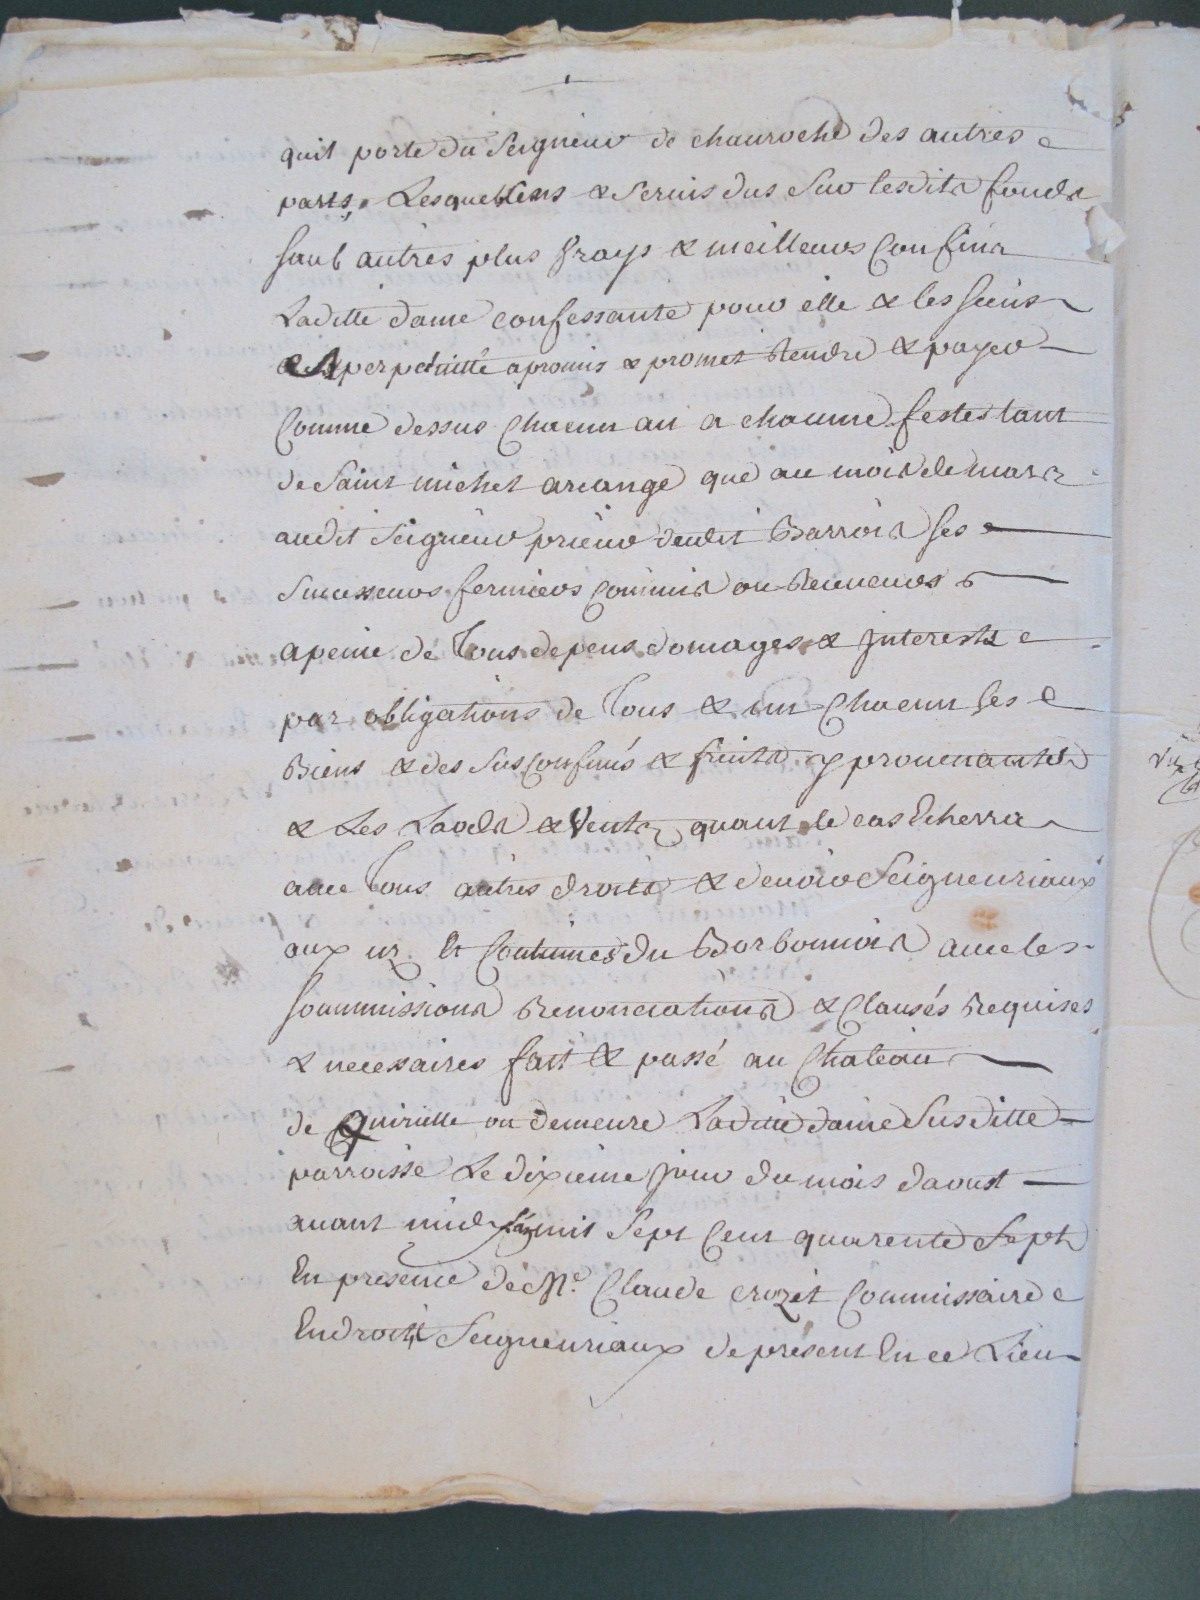 quil porte du Seigneur de chauroche des autres
parts, Lesquels Cens & Servis dus Sur lesdits fonds
sauf autres plus frays & meilleurs Confins
Laditte dame confessante pour elle & les siens
& Aperpetuitté apromis & promet Rendre & payer
Comme dessus Chacun an a chacune festes tant
de Saint michel arcange que au mois de mars
audit Seigneur prieur dudit Barrois ses
Successeurs fermiers Commis ou Receveurs
apeine de Tous depens domages & Interests
par obligations de Tous & un Chacun ses
Biens & des Susconfinés & fruits y provenants
& Les Laods & Vents quant le cas Echerra
avec Tous autres droits & devoir Seigneuriaux
aux us Et Coutumes du Borbonnois avec les
Soummissions Renonciations & Clausés Requises
& necessaires fait & passé au Chateau
de Quirielle ou demeure Laditte dame Susditte
parroisse Le dixieme jour du mois daoust
avant midy mil Sept Cent quarente Sept
En presence de Me. Claude crozet Commissaire
Endroits Seigneuriaux de present En ce Lieu